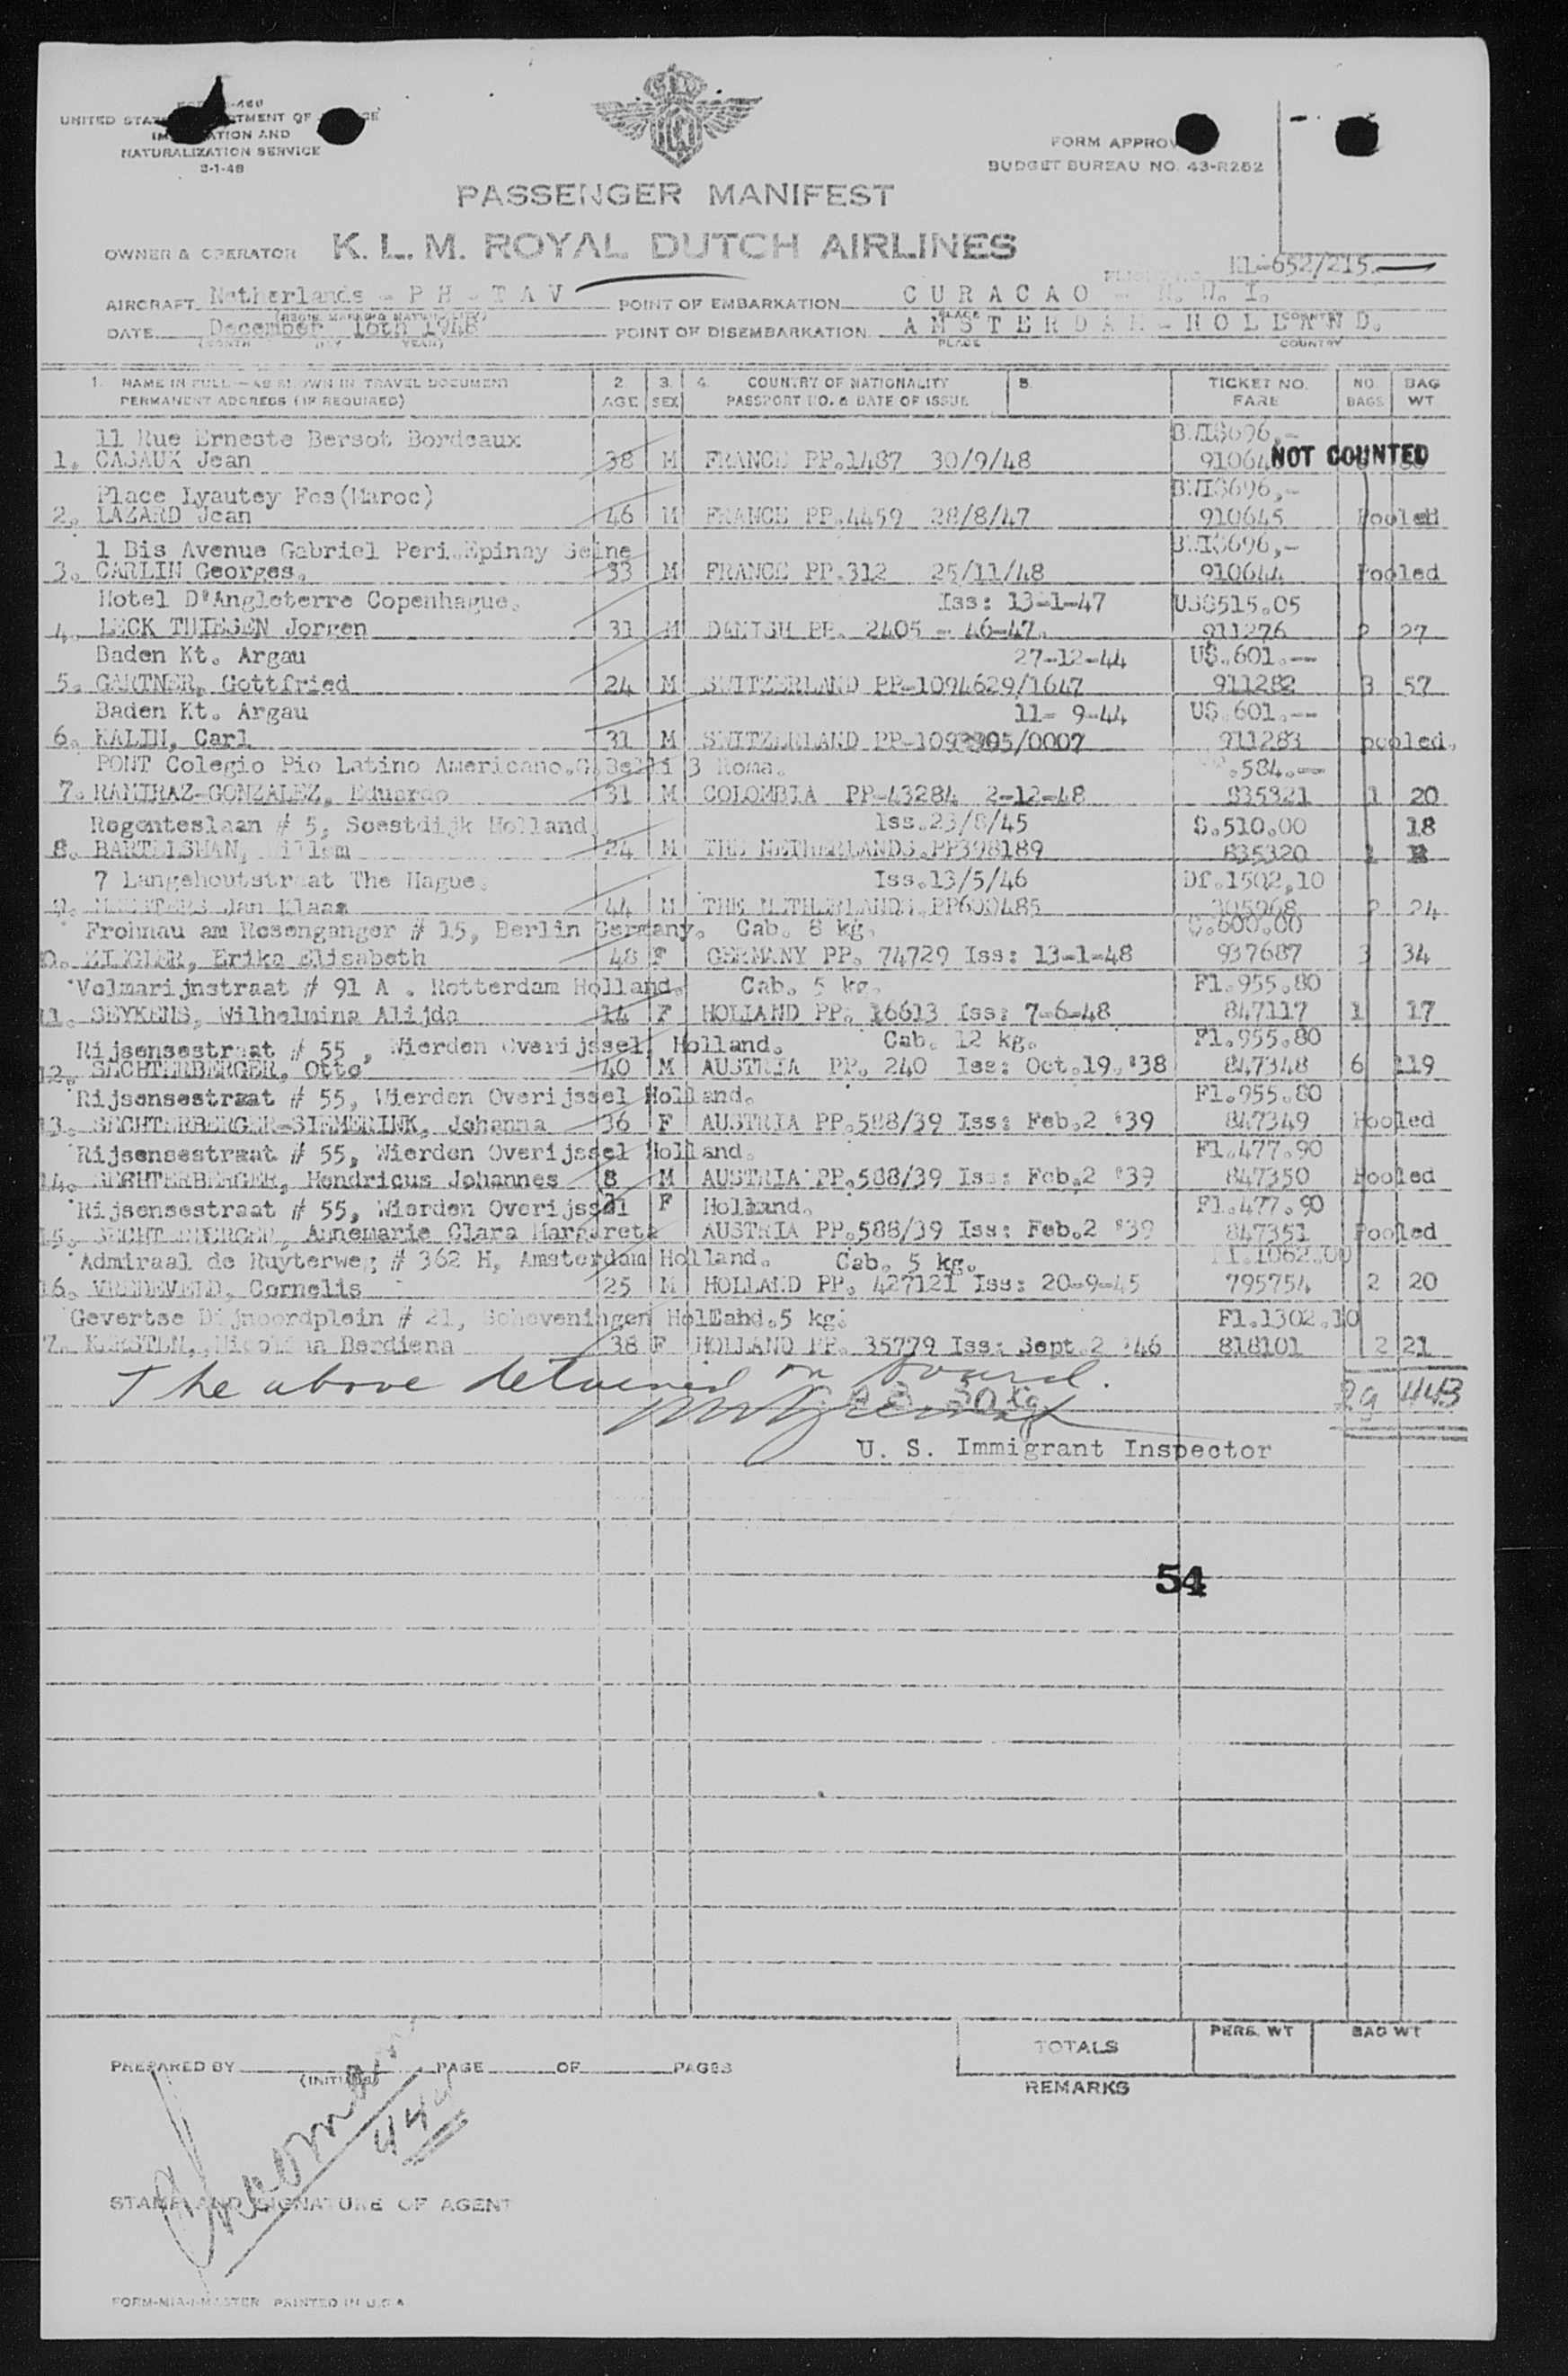 UNITED STATES DEPARTMENT OF JUSTICE
IMMIGRATION AND
NATURALIZATION SERVICE
FORM APPROV
BUDGET BUREAU NO. 43-R252
PASSENGER MANIFEST
OWNER & OPERATOR K. L. M. ROYAL DUTCH AIRLINES
KL-652/215.
AIRCRAFT Netherlands - P H - T A V POINT OF EMBARKATION C U R A C A O - N. W. I.
DATE December 16th 1948 POINT OF DISEMBARKATION A M S T E R D A M - H O L L A N D.
(MONTH DAY YEAR) PLACE COUNTRY
1. NAME IN FULL - AS SHOWN IN TRAVEL DOCUMENT 2. 3. 4. COUNTRY OF NATIONALITY 5. TICKET NO. NO. BAG
PERMANENT ADDRESS (IF REQUIRED) AGE SEX PASSPORT NO. & DATE OF ISSUE FARE BAGS WT
11 Rue Erneste Bersot Bordeaux
1. CASAUX Jean 38 M FRANCE PP.1487 30/9/48 91064 NOT COUNTED
Place Lyautey Fes(Maroc)
2. LAZARD Jean 46 M FRANCE PP.4459 28/8/47 910645 Pooled
1 Bis Avenue Gabriel Peri.Epinay Seine
3. CARLIN Georges. 33 M FRANCE PP.312 25/11/48 910644 Pooled
Hotel D'Angleterre Copenhague. Iss: 13-1-47 US$515.05
4. LECK THIESEN Jorgen 31 M DANISH PP. 2405 - 46-47. 911276 2 27
Baden Kt. Argau 27-12-44 U$.601.--
5. GARTNER, Gottfried 24 M SWITZERLAND PP-1094629/1647 911282 3 57
Baden Kt. Argau 11- 9-44 U$.601.--
6. KALIN, Carl 31 M SWITZERLAND 911283 pooled.
PONT Colegio Pio Latino Americano.G.Belli 3 Roma. .584.--
7. RAMIRAZ-GONZALEZ, Eduardo 31 M COLOMBIA PP-43284 2-12-48 835321 1 20
Regenteslaan # 5, Soestdijk Holland. Iss.23/8/45 $.510.00 18
8. BARTELSMAN, Willem 24 M THE NETHERLANDS.PP398189 835320
7 Langehoutstraat The Hague. Iss.13/5/46 Df.1502,10
9. Jan Klaas 44 M THE NETHERLANDS.PP600485 2 24
Frohnau am Rosenganger # 15, Berlin Germany. Cab. 8 kg. $.600.00
10. ZIEGLER, Erika Elisabeth 48 F GERMANY PP. 74729 Iss: 13-1-48 937687 3 34
Volmarijnstraat # 91 A . Rotterdam Holland. Cab. 5 kg. Fl.955.80
11. SEYKENS, Wilhelmina Alijda 14 F HOLLAND PP. 16613 Iss: 7-6-48 847117 1 17
Rijsensestraat # 55 , Wierden Overijssel, Holland. Cab. 12 kg. Fl.955.80
12. SECHTERBERGER, Otto 40 M AUSTRIA PP. 240 Iss: Oct.19.'38 847348 6 119
Rijsensestraat # 55, Wierden Overijssel Holland. Fl.955.80
13. SECHTERBERGER-SIEMERINK, Johanna 36 F AUSTRIA PP.588/39 Iss: Feb.2 '39 847349 Pooled
Rijsensestraat # 55, Wierden Overijssel Holland. Fl.477.90
14. SECHTERBERGER, Hendricus Johannes 8 M AUSTRIA PP.588/39 Iss: Feb.2 '39 847350 Pooled
Rijsensestraat # 55, Wierden Overijssel F Holland. Fl.477.90
15. SECHTERBERGER, Annemarie Clara Margareta AUSTRIA PP.588/39 Iss: Feb.2 '39 847351 Pooled
Admiraal de Ruyterweg # 362 H, Amsterdam Holland. Cab. 5 kg. Fl.1062.00
16. VREDEVELD, Cornelis 25 M HOLLAND PP. 427121 Iss: 20-9-45 795754 2 20
Gevertse Dijnoordplein # 21, Scheveningen Holland.5 kg. Fl.1302.10
7. KERSTEN, Berdiena 38 F HOLLAND PP. 35779 Iss: Sept.2 '46 818101 2 21
The above detained on board.
30 kg 29 443
U. S. Immigrant Inspector
54
TOTALS PERS. WT BAG WT
PREPARED BY PAGE OF PAGES
(INITIALS)
REMARKS
STAMP AND SIGNATURE OF AGENT
FORM-MIA-1-MASTER PRINTED IN U.S.A